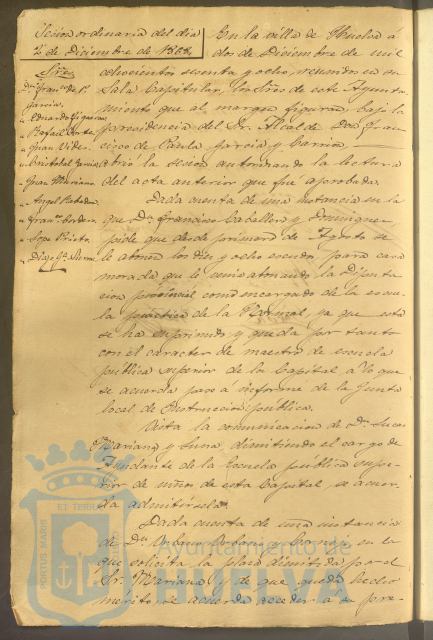 Sesion ordinaria del dia
2 de Diciembre de 1868.
Sres
Dn. Franco. de P.
Garcia.
Eduardo Figueroa
Rafael Corte
Juan Vides
Cristobal Garcia
Juan Muriano
Angel Rabadan
Franco. Cordero
Lope Prieto
Diego Ga. Serra
En la villa de Huelva á
dos de Diciembre de mil
ochocientos sesenta y ocho, reunidos en su
Sala Capitular, los Sres de este Ayunta
miento que al margen figuran, bajo la
presidencia del Sr. Alcalde Don Fran
cisco de Paula Garcia y Barria,
abrió la sesion autorizando la lectura
del acta anterior que fué aprobada.
Dada cuenta de una instancia en la
que Dn. Francisco Caballero y Dominguez
pide que desde primero de Agosto se
le abonen los diez y ocho escudos para casa
morada que le venia abonando la Diputa
cion provincial como encargado de la escue
la práctica de la Normal, ya que esta
se ha suprimido y queda por tanto
con el caracter de maestro de escuela
pública superior de la Capital á lo que
se acuerda pase á informe de la Junta
local de Instruccion pública.
Vista la comunicacion de Dn. Lucas
Mariano y Luna, dimitiendo el cargo de
Ayudante de la Escuela pública supe
rior de niños de esta Capital se acuer
da admitírsela.
Dada cuenta de una instancia
de Dn. en la
que solicita la plaza dimitida por el
Sr. Mariano y de que queda hecho
mérito, se acuerda acceder á su pre-
PORTUS MARIS
ET TERRAE
Ayuntamiento de
HUELVA